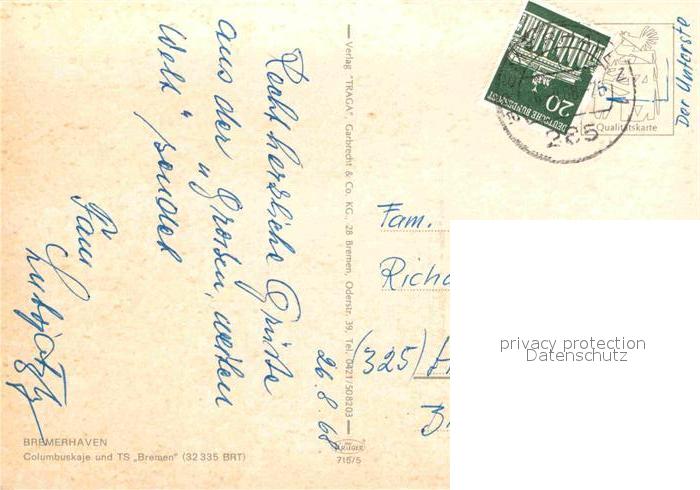 Recht herzliche Grüße
aus der „Großen, weiten
Welt" sendet
Fam.
26.8.68
BREMERHAVEN
Columbuskaje und TS „Bremen" (32 335 BRT)
— Verlag "TRAGA", Garbrecht & Co. KG., 28 Bremen, Oderstr. 39, Tel. 0421/508203 —
KRÜGER
715/5
DEUTSCHE BUNDESPOST
20
285
Qualitätskarte
Fam.
Richa
(325)
privacy protection
Datenschutz